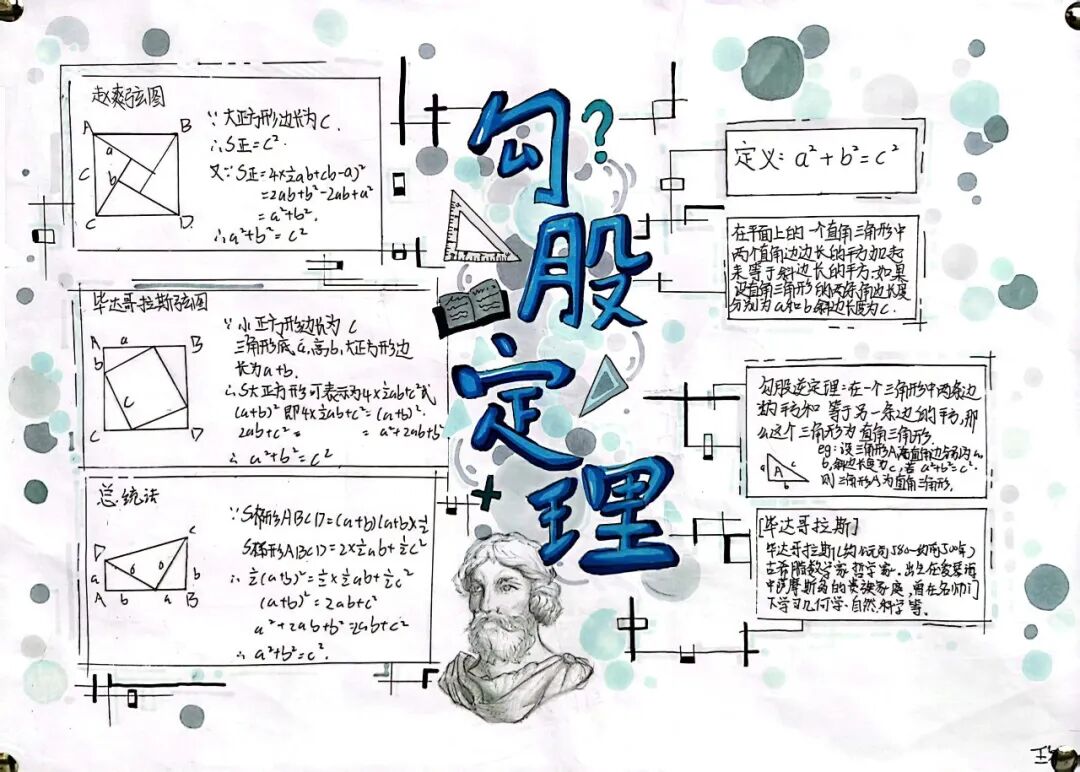 勾股定理
?
赵爽弦图
A
B
a
C
b
C
D
∵大正方形边长为C.
∴S正=c².
又∵S正=4×½ab+(b-a)²
=2ab+b²-2ab+a²
=a²+b².
∴a²+b²=c²
毕达哥拉斯弦图
A
a
B
b
C
C
D
∵小正方形边长为C
三角形底a,高b,大正方形边
长为a+b.
∴S大正方形可表示为4×½ab+c²或
(a+b)² 即4×½ab+c²=(a+b)².
2ab+c²= = a²+2ab+b²
∴a²+b²=c²
总统法
D
C
a
b
A
b
a
B
∵S梯形ABCD=(a+b)(a+b)×½
S梯形ABCD=2×½ab+½c²
∴½(a+b)²=2×½ab+½c²
(a+b)²=2ab+c²
a²+2ab+b²=2ab+c²
∴a²+b²=c².
定义:a²+b²=c²
在平面上的一个直角三角形中
两个直角边边长的平方加起
来等于斜边长的平方.如果
设直角三角形的两条角边长度
分别为a和b,斜边长度为c.
勾股逆定理:在一个三角形中两条边
的平方和等于另一条边的平方,那
么这个三角形为直角三角形.
eg:设三角形A两直角边分别为a,
b,斜边长度为c,若a²+b²=c².
则三角形A为直角三角形.
a
A
c
b
[毕达哥拉斯]
毕达哥拉斯(约公元前580~约前500年)
古希腊数学家、哲学家.出生在爱琴海
中萨摩斯岛的贵族家庭,曾在名师门
下学习几何学、自然科学等.